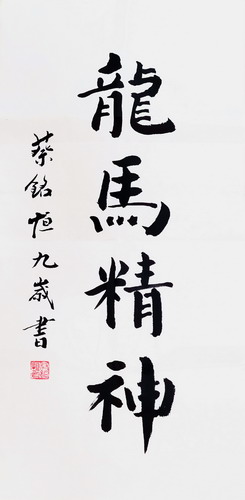 龍馬精神
蔡銘恒九歲書